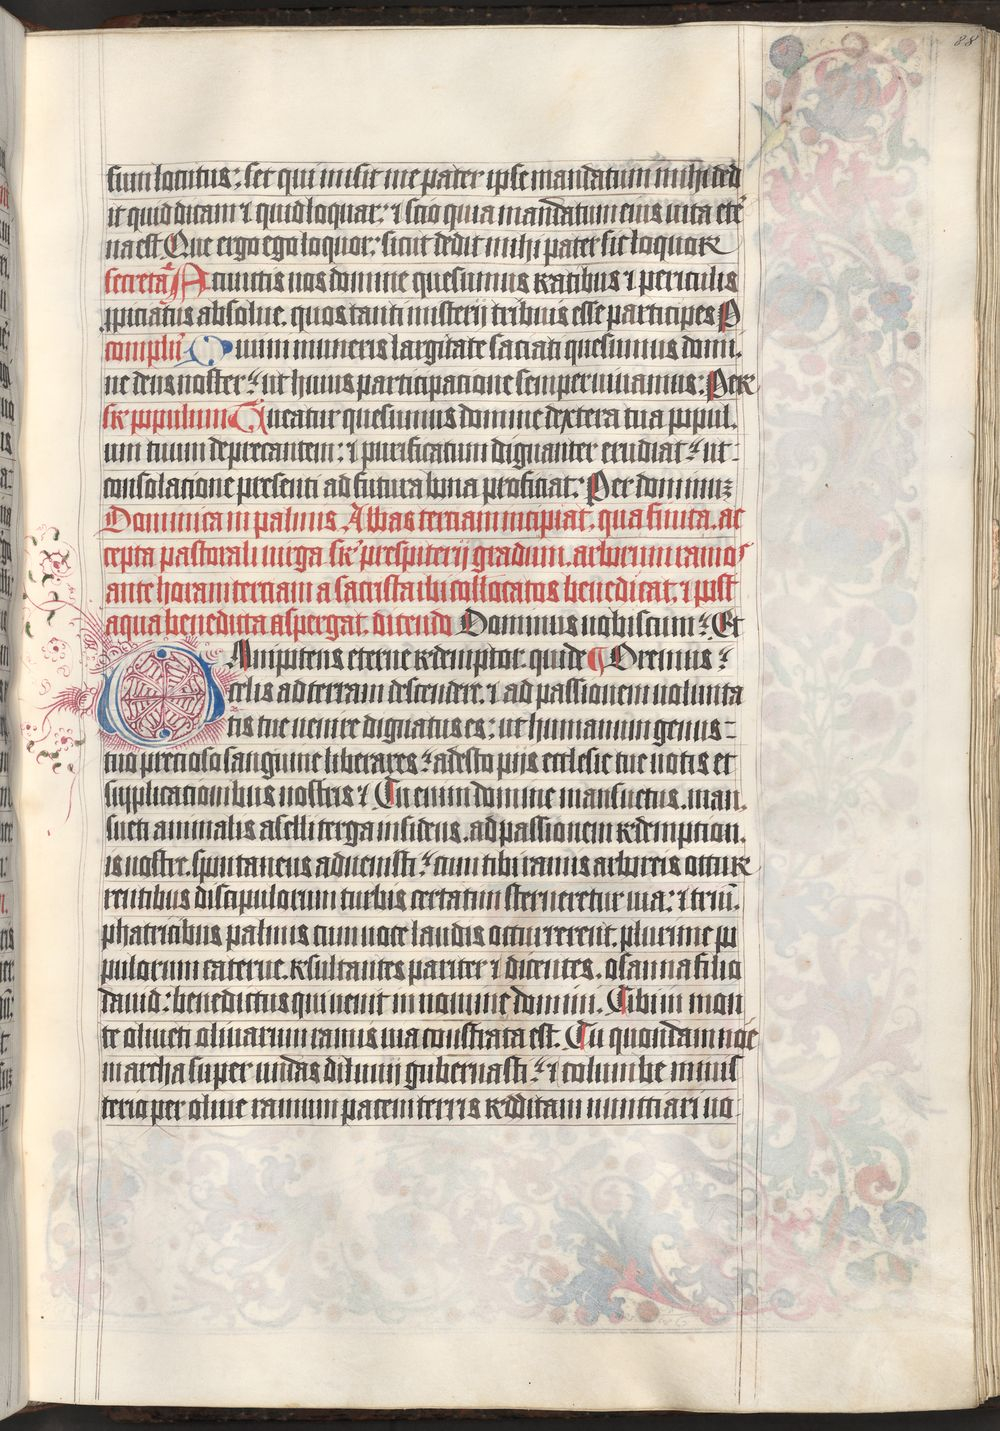 88
sum locutus: set qui misit me pater ipse mandatum mihi ded
it quid dicam ⁊ quid loquar: ⁊ scio quia mandatum eius uita etͤr
na est Que ergo ego loquor: sicut dedit mihi pater sic loquor
secreta A cunctis nos domine quesumus reatibus ⁊ periculis
ꝓpiciatus absolue. quos tanti misterij tribuis esse participes P
complū D iuini muneris largitate saciati quesumus domi.
ne deus noster: ut huius participacione semper uiuamus: Per
sr̄ populum T ueatur quesumus domine dextera tua popul.
um tuum deprecantem: ⁊ purificatum dignanter erudiat: ut
consolacione presenti ad futura bona proficiat: Per dominuꝫ
Dominica in palmis. Abbas terciam incipiat. qua finita. ac
cepta pastorali uirga sr̄ prespiterij gradum. arborum ramos
ante horam terciam a sacrista ibi collocatos benedicat. ⁊ post
aqua benedicta aspergat. dicendo Dominus uobiscum: Et
O Mnipotens eterne redemptor. qui de ¶ Oremus:
celis ad terram descendere. ⁊ ad passionem uolunta
tis tue uenire dignatus es: ut humanum genus
tuo precioso sanguine liberares: adesto pijs ecclesie tue uotis et
supplicationibus nostris ⁊ Tu enim domine mansuetus. man.
sueti animalis aselli terga insidens. ad passionem redemption.
is nostre. spontaneus aduenisti: cum tibi ramis arboreis occur
rentibus discipulorum turbis certatim sterneretur uia: ⁊ triū.
phatricibus palmis cum uoce laudis occurrerent. plurime po
pulorum caterue. resultantes pariter ⁊ dicentes. osanna filio
dauid: benedictus qui uenit in nomine domini. Tibi in mon
te oliueti oliuarum ramis uia constrata est. Tu quondam noe
marcha super undas diluuij gubernasti: ⁊ columbe minis
terio per oliue ramum pacem terris redditam nunctiari uo